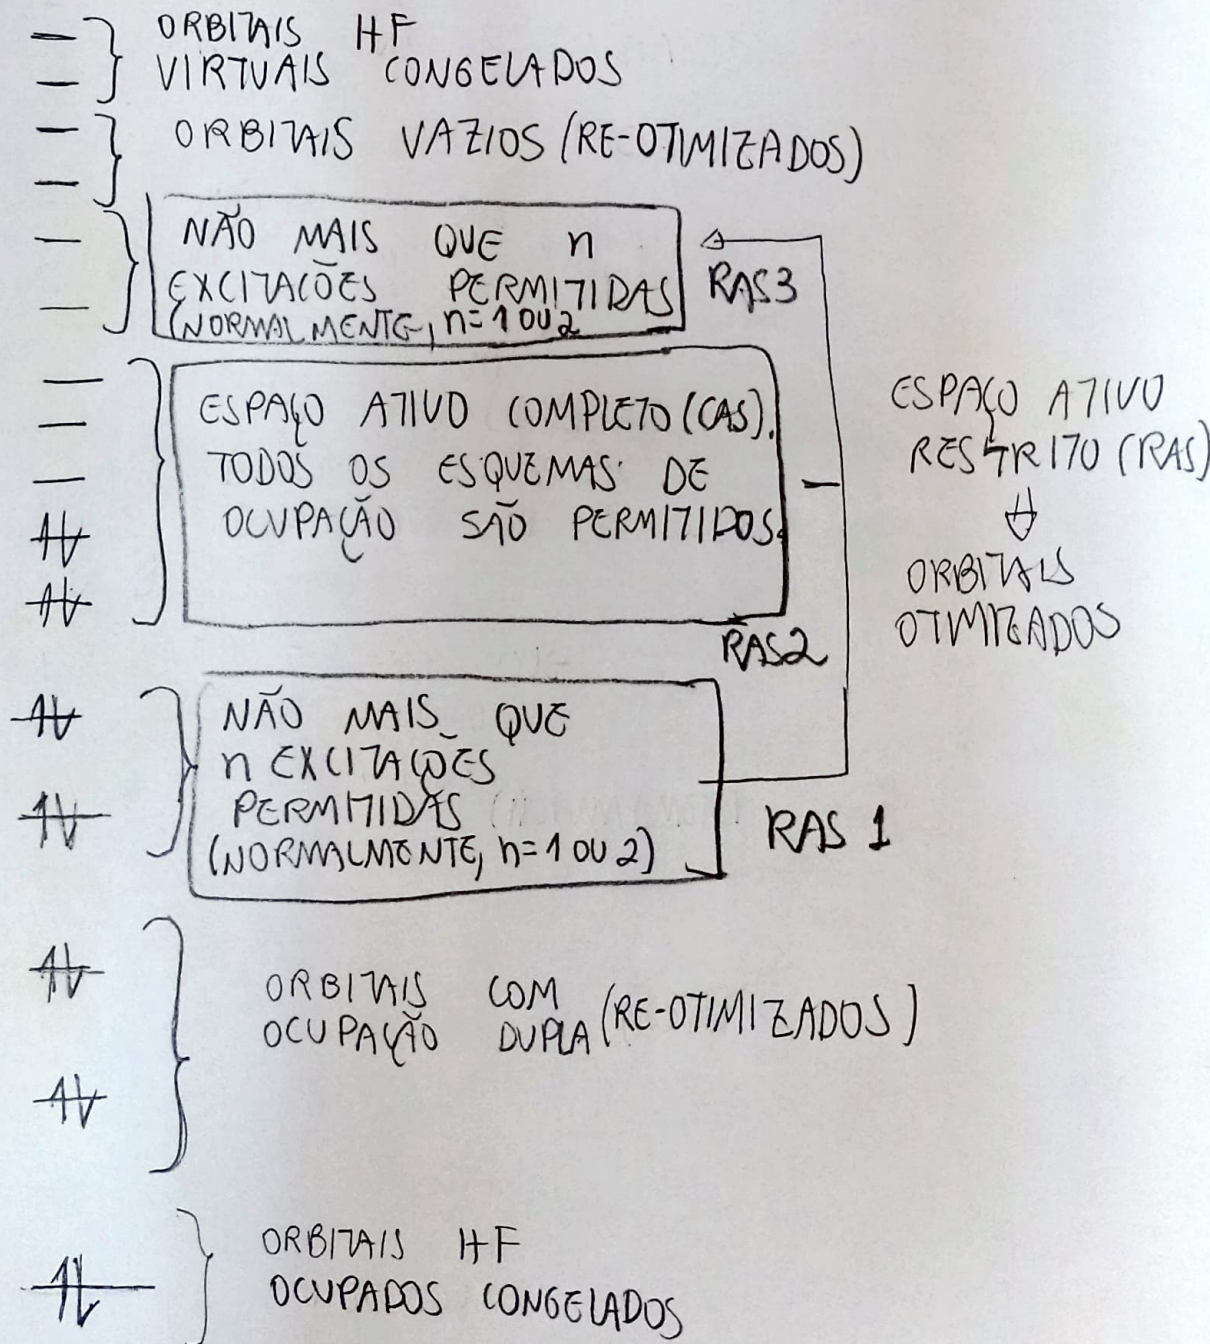 ORBITAIS HF
VIRTUAIS CONGELADOS
ORBITAIS VAZIOS (RE-OTIMIZADOS)
NÃO MAIS QUE n
EXCITAÇÕES PERMITIDAS
(NORMALMENTE, n=1 OU 2
RAS3
ESPAÇO ATIVO COMPLETO (CAS).
TODOS OS ESQUEMAS DE
OCUPAÇÃO SÃO PERMITIDOS.
RAS2
ESPAÇO ATIVO
RESTRITO (RAS)
ORBITAIS
OTIMIZADOS
NÃO MAIS QUE
n EXCITAÇÕES
PERMITIDAS
(NORMALMENTE, n=1 OU 2)
RAS 1
ORBITAIS COM
OCUPAÇÃO DUPLA (RE-OTIMIZADOS)
ORBITAIS HF
OCUPADOS CONGELADOS